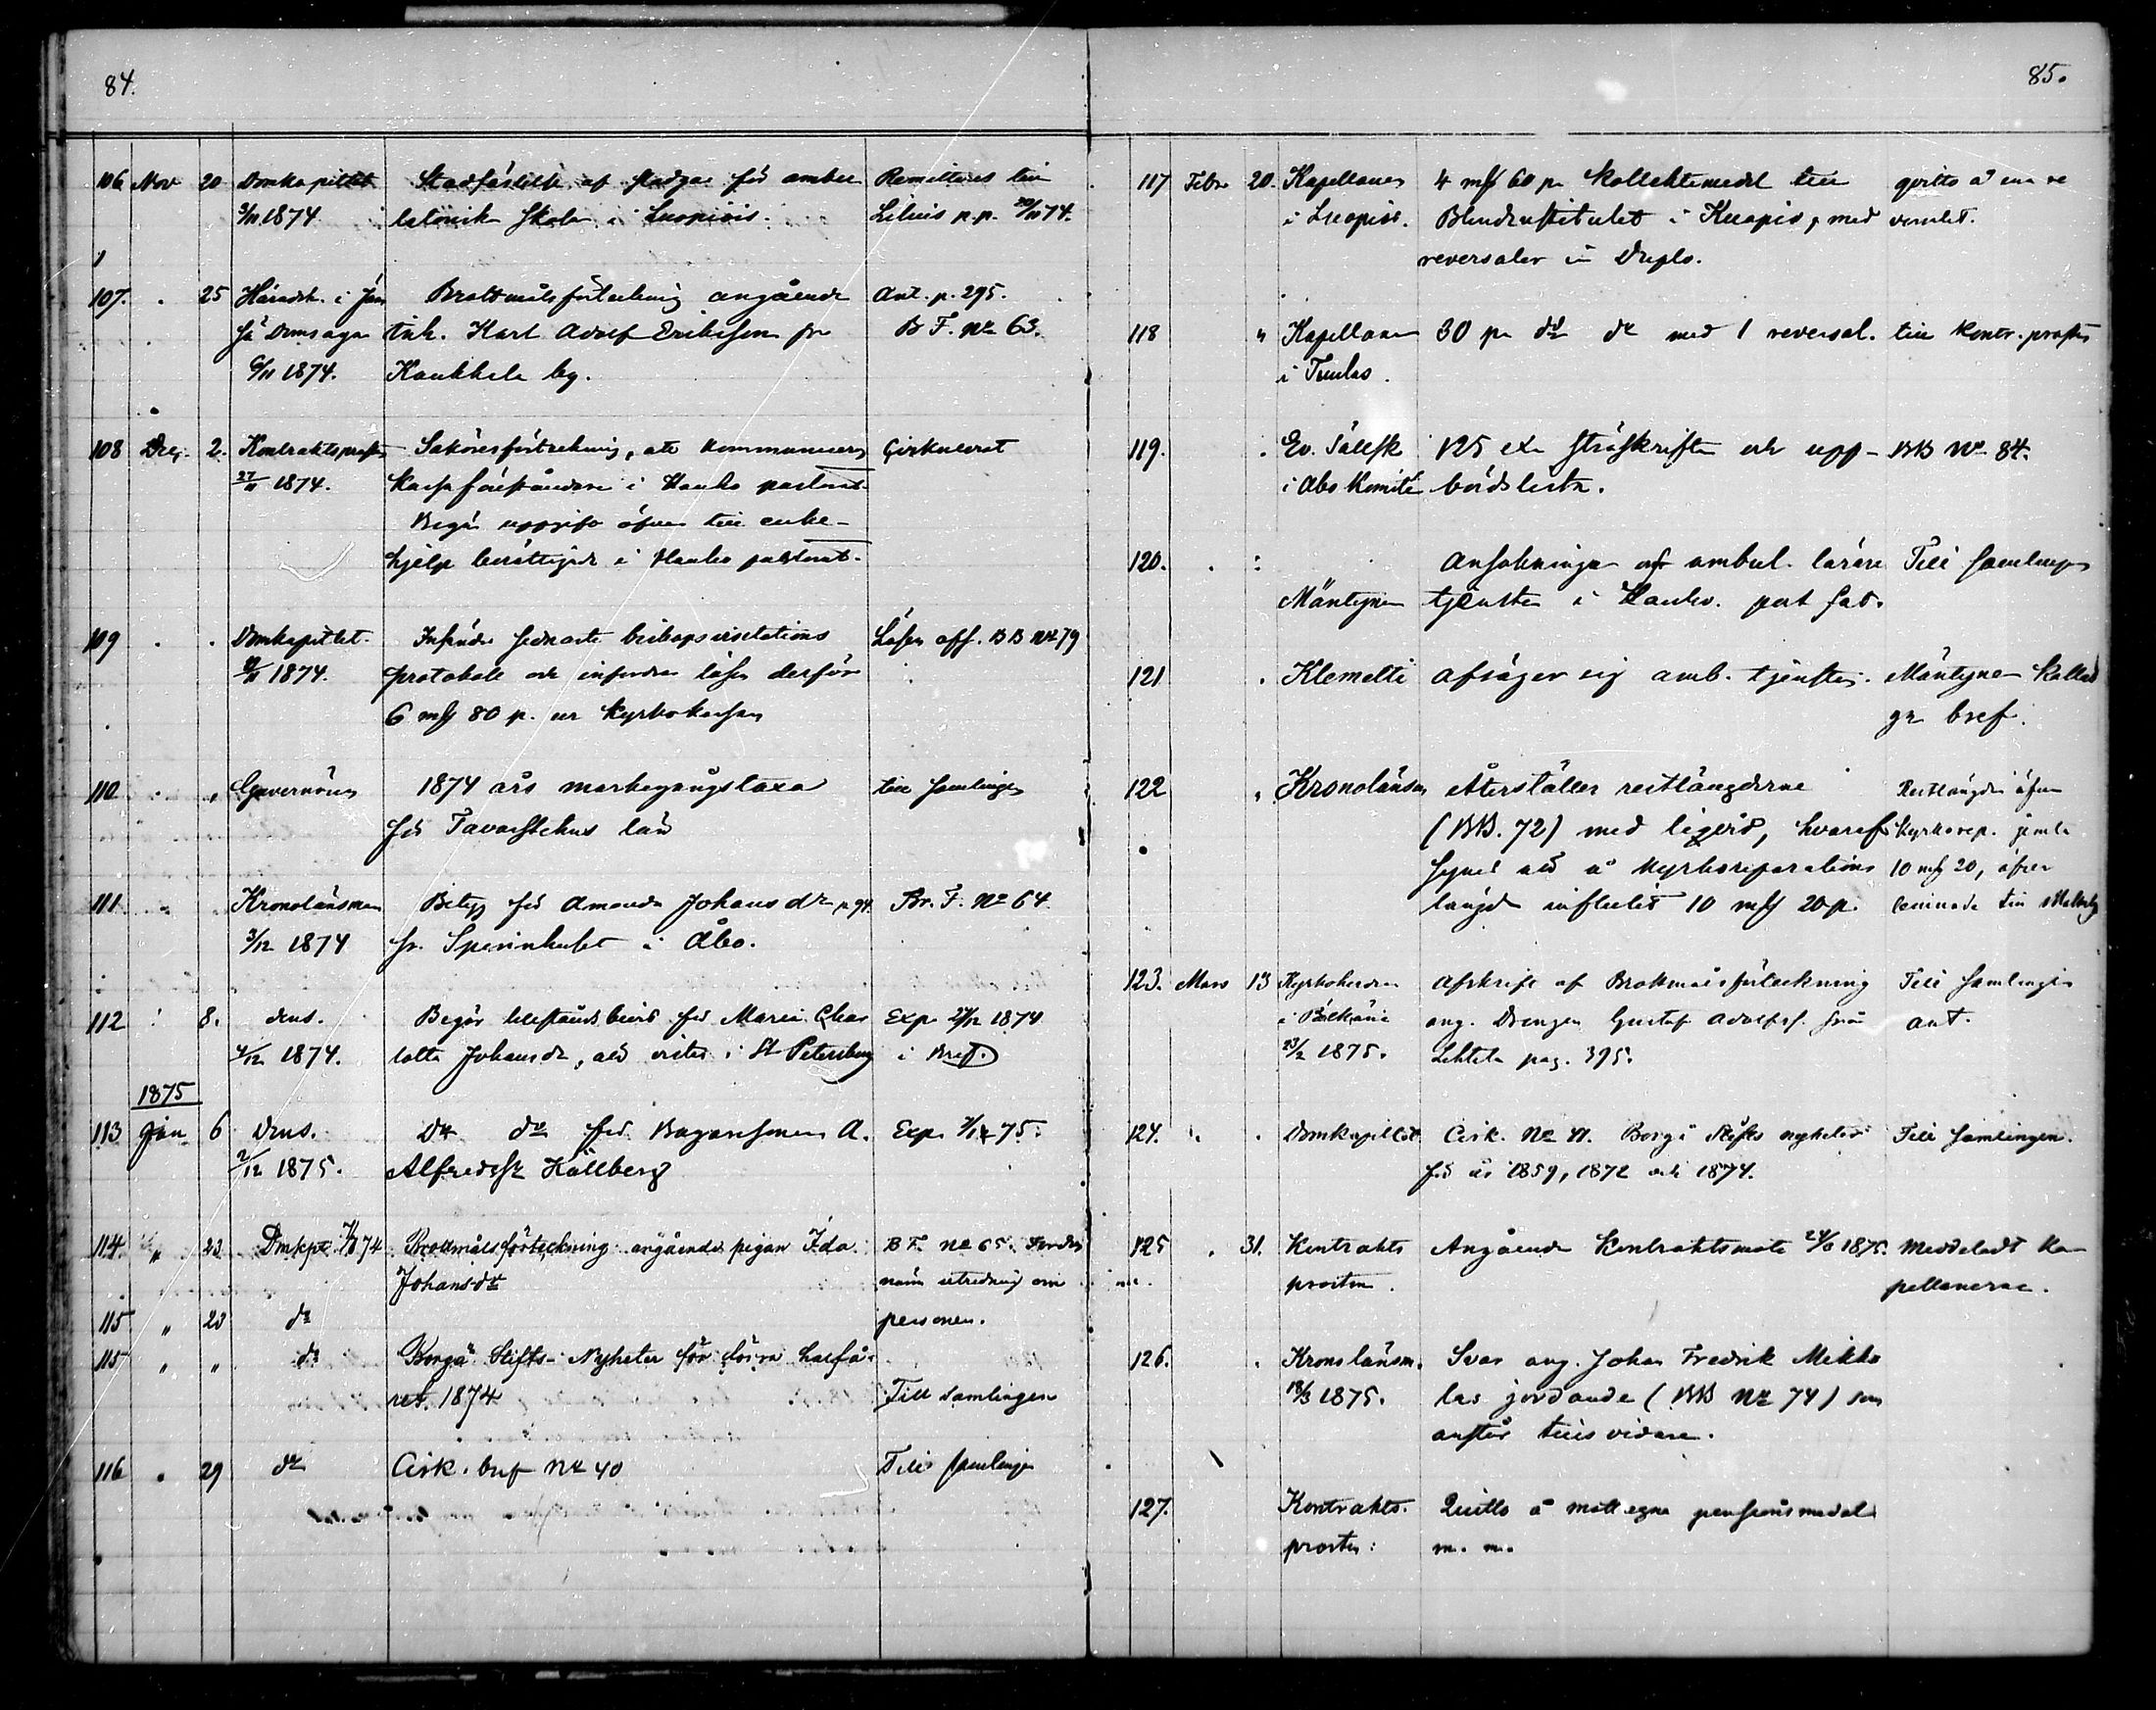 84.
106 Nov 20 Domkapitlet Stadfästelse af stadgar för ambu Remitteras till
5/11 1874 latorisk skola i Luopiois. Lilius p.p. 20/11 74.
107. . 25 Häradsh. i Brottmålsförteckning angående Ant. p. 295.
domsaga Karl Adolf Eriksson fr B F. No 63.
6/11 1874. Kaukkala by.
108 Dec. 2. Kontraktsprosten Saköresförteckning, att kommuniceras Cirkulerat
27/11 1874. Kassaföreståndare i Hauho pastorat.
Begär uppgift öfver till enke-
hjelp berättigade i Hauho pastorat.
109 . . Domkapitlet. Insänder senaste biskopsvisitations Lösen afs. BB No 79
1874. protokoll och infordrar lösen derför
6 mk 80 p. ur Kyrkokassan
110 . „ Guvernören 1874 års markegångstaxa till samlingen
för Tavastehus län
111 „ Kronolänsman Betyg för Amanda Johansdr p 94. Br. F. No 64
3/12 1874 fr. Spinnhuset i Åbo.
112 . 8. dens. Begär för Maria Char Exp. 1874
4/12 1874. lotta Johansdr, vistas i St Petersburg i Bref.
1875
113 Jan 6 Dens. Do do för A. Exp. 75.
2/12 1875. Alfredsdr Hällberg
114. „ 23 Dmkpt. 74 Brottmålsförteckning angående pigan Ida B F. No 65.
Johansdr utredning om
115 „ 23 do personen.
115 „ „ do Borgå Stifts-Nyheter för förra halfå-
ret. 1874 Till samlingen
116 . 29 do Cirk. bref No 40 Till samlingen
85.
117 Febr. 20. Kapellanen 4 mk 60 p. Kollektmedel till qvitto å
i Luopiois. Blindinstitutet i Kuopio, med
reversaler in Duplo.
118 „ Kapellanen 30 p. do do med 1 reversal. till kontr. prosten
i Tuulos.
119. . Ev. Sällsk 125 ex. ströskrifter och upp- BB No 84.
i Åbo Komité bördslista.
120. . : Ansökningar ambul. lärare Till samlingen
Mäntynen tjensten i Hauho
121 . Klemetti afsäger sig amb. tjensten. Mäntynen kallad
gm bref.
122 „ Kronolänsm. Återställer restlängderne Restlängder öfver
(BB. 72) med hvaraf Kyrkorep. jemte
synes att å Kyrkoreparations 10 mk 20,
längd influtit 10 mk 20 p.
123. Mars 13 Kyrkoherden Afskrift af Brottmålsförteckning Till samlingen
i Pälkäne ang. Drengen Gustaf Adolfss. från ant.
23/2 1875. pag. 395.
124. „ . Domkapitlet Cirk. No 41. Borgå Stifts nyheter Till samlingen.
för år 1859, 1872 och 1874.
125 . 31. Kontrakts Angående Kontraktsmöte 1875. Meddeladt Ka
prosten. pellanerne.
126. . Kronolänsm. Svar ang. Johan Fredrik Mikko
18/3 1875. las jordande (BB No 74) som
anstår tills vidare.
127. Kontrakts. Quitto å mottagna pensionsmedel
prosten: m. m.